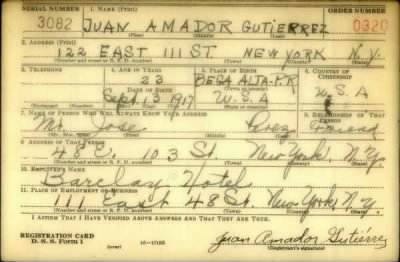 SERIAL NUMBER 1. NAME (Print) ORDER NUMBER
3082 JUAN AMADOR GUTIERREZ 0320
(First) (Middle) (Last)
2. ADDRESS (Print)
122 EAST 111 ST. NEW YORK N.Y.
(Number and street or R. F. D. number) (Town) (County) (State)
3. TELEPHONE 4. AGE IN YEARS 5. PLACE OF BIRTH 6. COUNTRY OF CITIZENSHIP
23 BEGA ALTA-P.R.
DATE OF BIRTH (Town or county)
Sept. 3 1917 U.S.A U.S.A
(Exchange) (Number) (Mo.) (Day) (Yr.) (State or country)
7. NAME OF PERSON WHO WILL ALWAYS KNOW YOUR ADDRESS 8. RELATIONSHIP OF THAT PERSON
Mr. Jose Friend
(Mr., Mrs., Miss) (First) (Middle) (Last)
9. ADDRESS OF THAT PERSON
48 E. 103 St. New York, N.Y.
(Number and street or R. F. D. number) (Town) (County) (State)
10. EMPLOYER'S NAME
Barclay Hotel
11. PLACE OF EMPLOYMENT OR BUSINESS
111 East 48 St. New York, N.Y.
(Number and street or R. F. D. number) (Town) (County) (State)
I AFFIRM THAT I HAVE VERIFIED ABOVE ANSWERS AND THAT THEY ARE TRUE.
REGISTRATION CARD
D. S. S. Form 1 (over) 16-17105 Juan Amador Gutiérrez
(Registrant's signature)